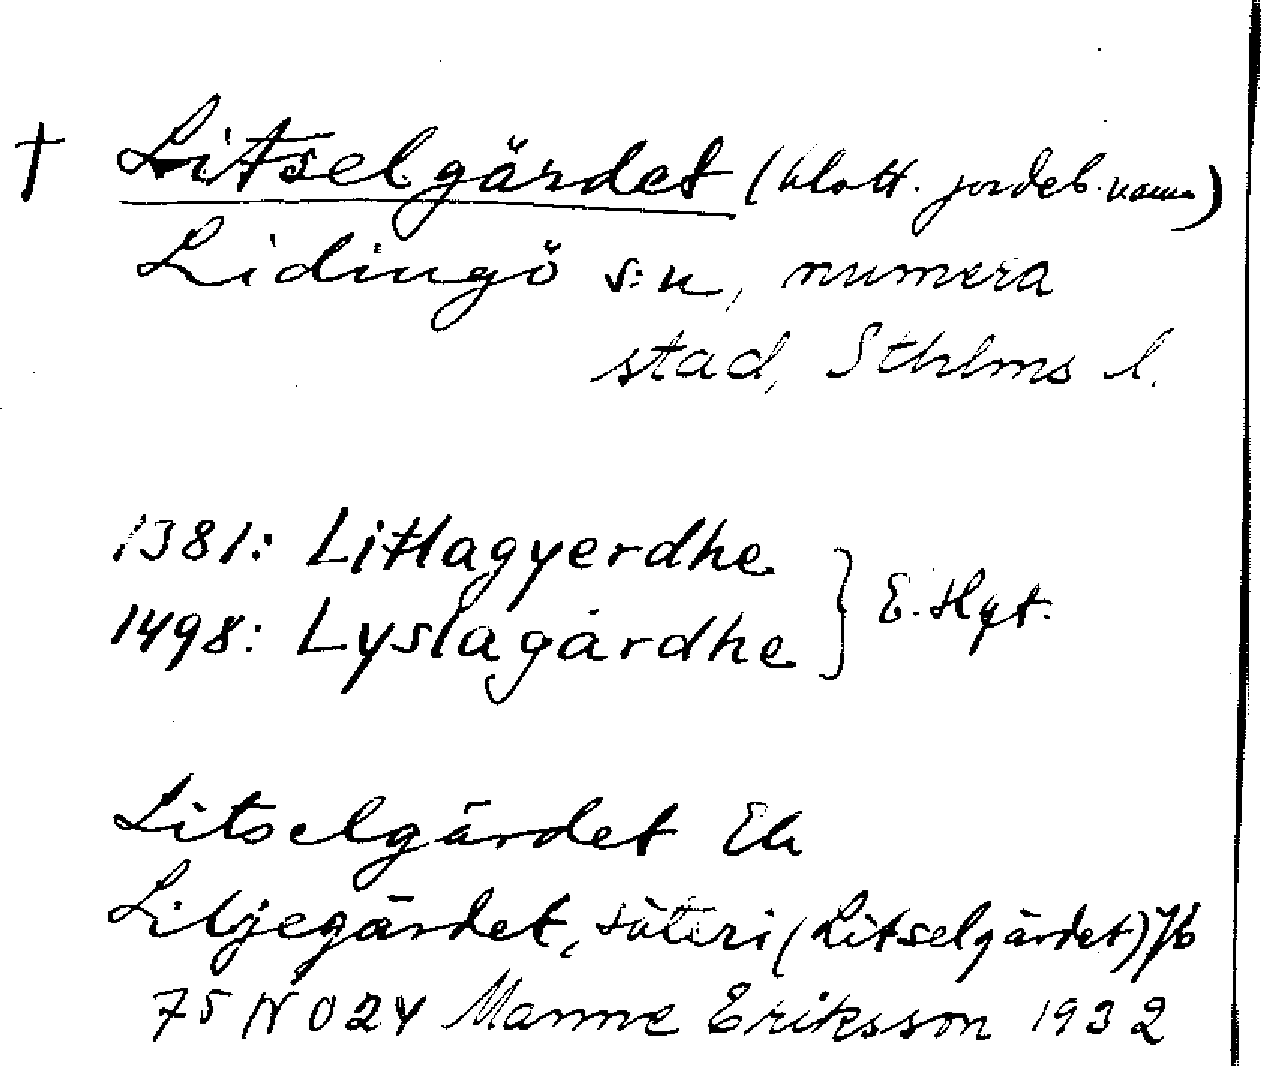 † Litselgärdet (blott. jordeb. namn)
Lidingö s:n, numera
stad, Sthlms l.
1381: Litlagyerdhe
1498: Lyslagårdhe } E. Hgt.
Litselgärdet Ek
Liljegärdet, säteri (Litselgärdet) Jb
75 NO 24 Manne Eriksson 1932